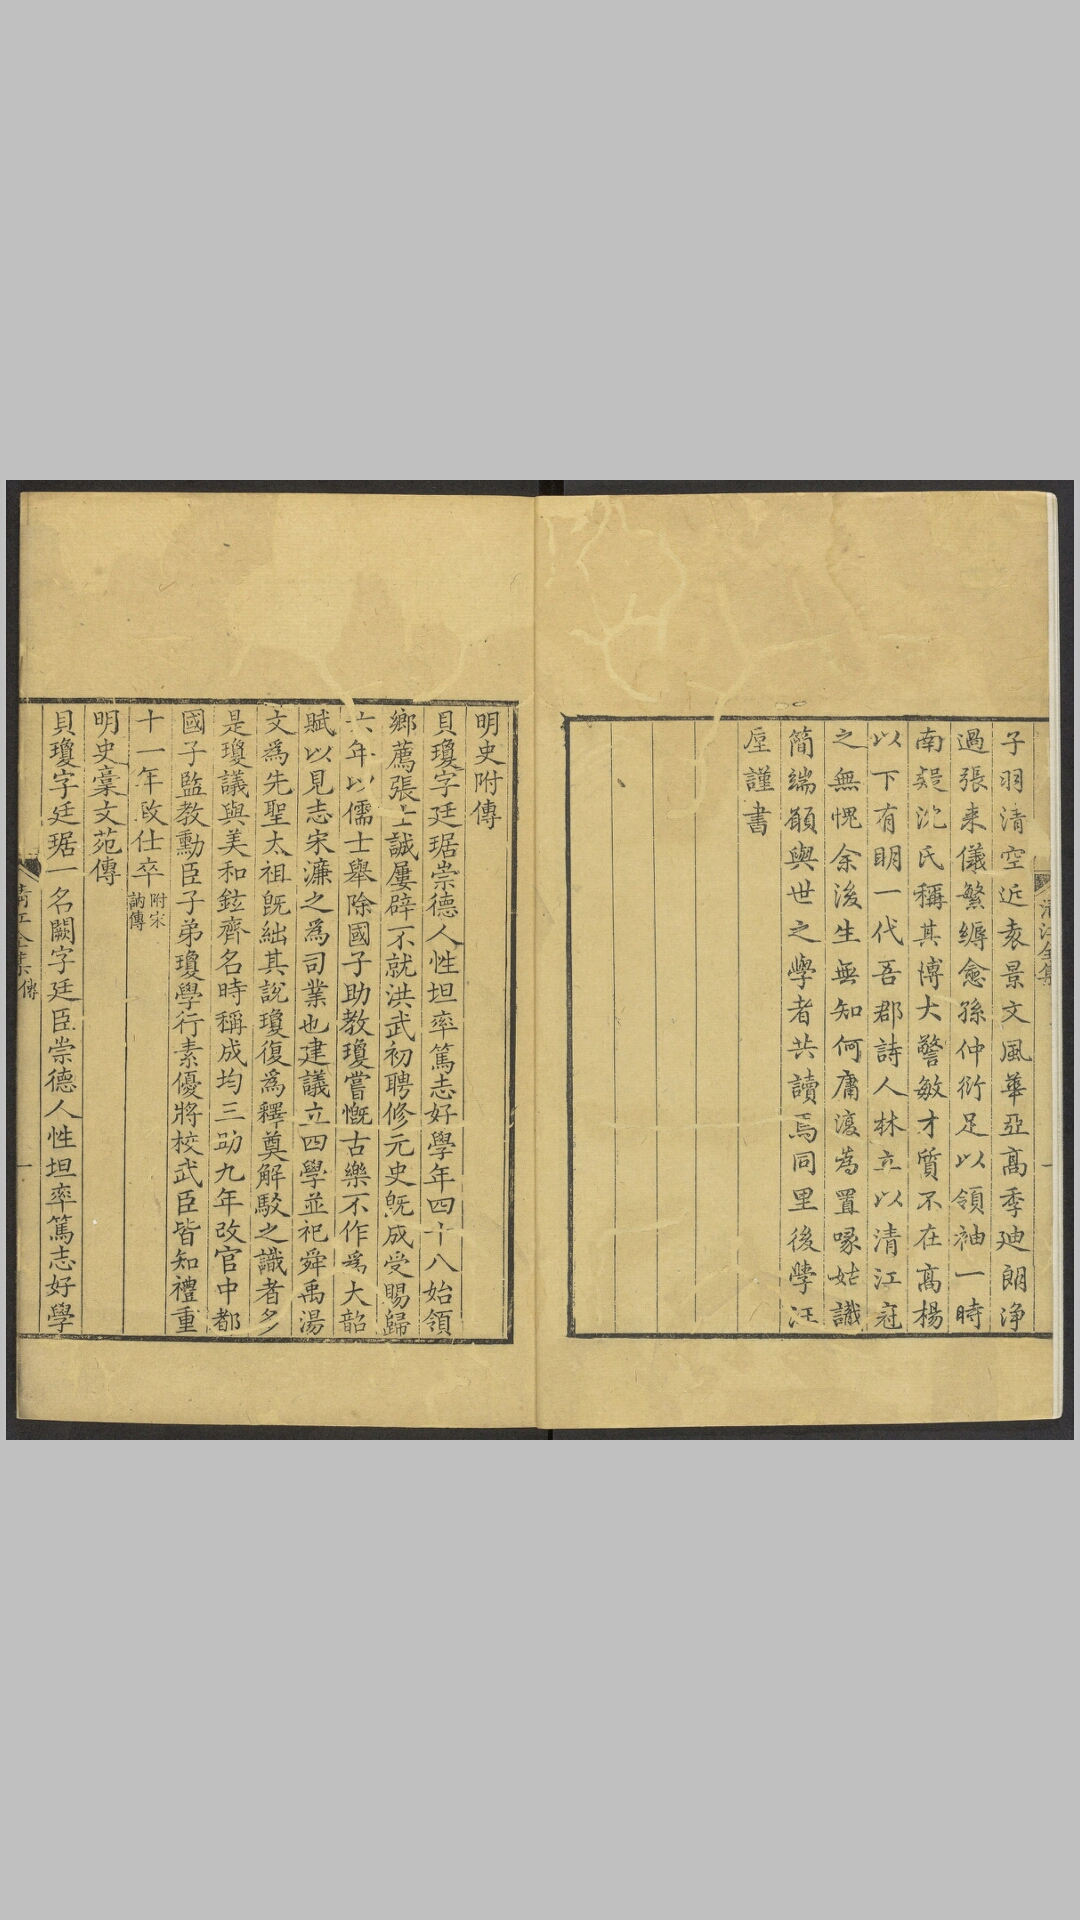 子羽清空近袁景文風華亞高季廸朗淨
過張來儀繁縟愈孫仲衍足以領袖一時
南疑沈氏稱其博大警敏才質不在高楊
以下有明一代吾郡詩人林立以清江冠
之無愧余後生無知何庸復為置喙姑識
簡端願與世之學者共讀焉同里後學汪
垕謹書
清江全集
明史附傳
貝瓊字廷琚崇德人性坦率篤志好學年四十八始領
鄉薦張士誠屢辟不就洪武初聘修元史既成受賜歸
六年以儒士舉除國子助教瓊嘗慨古樂不作爲大韶
賦以見志宋濂之爲司業也建議立四學並祀舜禹湯
文爲先聖太祖既絀其說瓊復爲釋奠解駁之識者多
是瓊議與美和鉉齊名時稱成均三助九年改官中都
國子監教勳臣子弟瓊學行素優將校武臣皆知禮重
十一年致仕卒附宋訥傳
明史稾文苑傳
貝瓊字廷琚一名闕字廷臣崇德人性坦率篤志好學
清江全集 傳 一